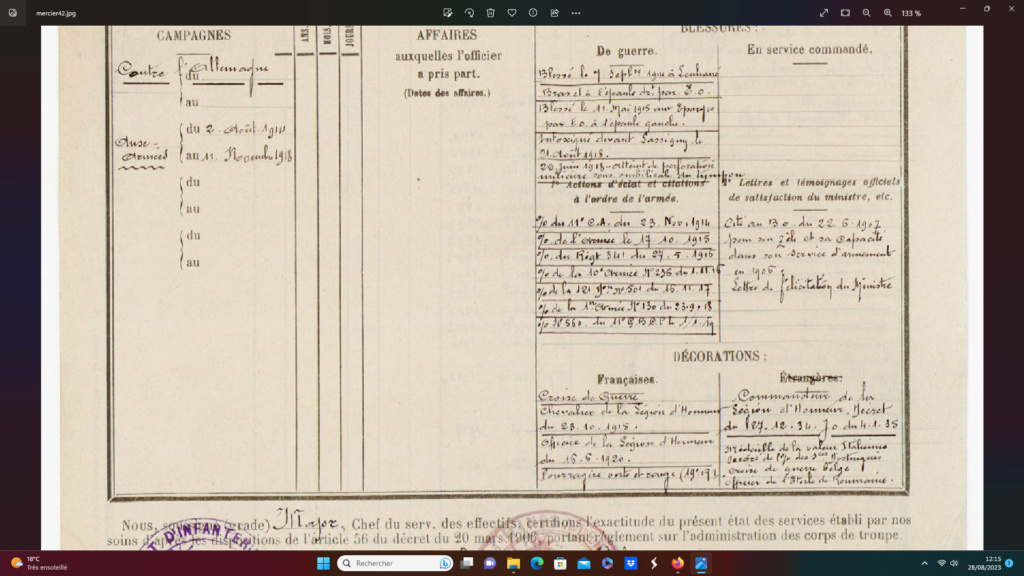 mercier42.jpg
133 %
CAMPAGNES
ANS.
MOIS.
JOURS
AFFAIRES
auxquelles l'officier
a pris part.
(Dates des affaires.)
BLESSURES :
De guerre.
En service commandé.
Contre l'Allemagne
du
au
du 2 Août 1914
au 11 Novembre 1918
du
au
du
au
Blessé le 7 Septbre 1914 à Lenharé
Bras et à l'épaule dr. par E.O.
Blessé le 11 Mai 1915 aux Eparges
par E.O. à l'épaule gauche.
Intoxiqué devant Lassigny le
21 Août 1918.
20 Juin 1918 - Atteint de perforation
du tympan
1° Actions d'éclat et citations
à l'ordre de l'armée.
% du 11e C.A. du 23 Nov. 1914
% de l'Armée le 17.10.1915
% du Régt 341 du 27.5.1916
% de la 10e Armée N° 236 du 1.11.16
% de la 121 N° 501 du 15.11.17
% de la 1re Armée N° 130 du 23.9.18
% N° 560 du 11e
2° Lettres et témoignages officiels
de satisfaction du ministre, etc.
Cité au B.O. du 22.6.1907
pour son zèle et sa capacité
dans son service d'armement
en 1906
Lettre de félicitation du Ministre
DÉCORATIONS :
Françaises.
Étrangères:
Croix de Guerre
Chevalier de la Légion d'Honneur
du 23.10.1915.
Officier de la Légion d'Honneur
du 16.6.1920.
Fourragère verte et rouge
Commandeur de la
Légion d'Honneur. Décret
du 27.12.34. J.O du 4.1.35
Médaille de la valeur Italienne
Croix de guerre Belge
Officier de l'Etoile de Roumanie.
Nous, (grade) Major, Chef du serv. des effectifs, certifions l'exactitude du présent état des services établi par nos
soins d'après les dispositions de l'article 56 du décret du 20 mars 1906, portant règlement sur l'administration des corps de troupe.
D'INFANTERIE
18°C
Très ensoleillé
Rechercher
12:15
28/08/2023